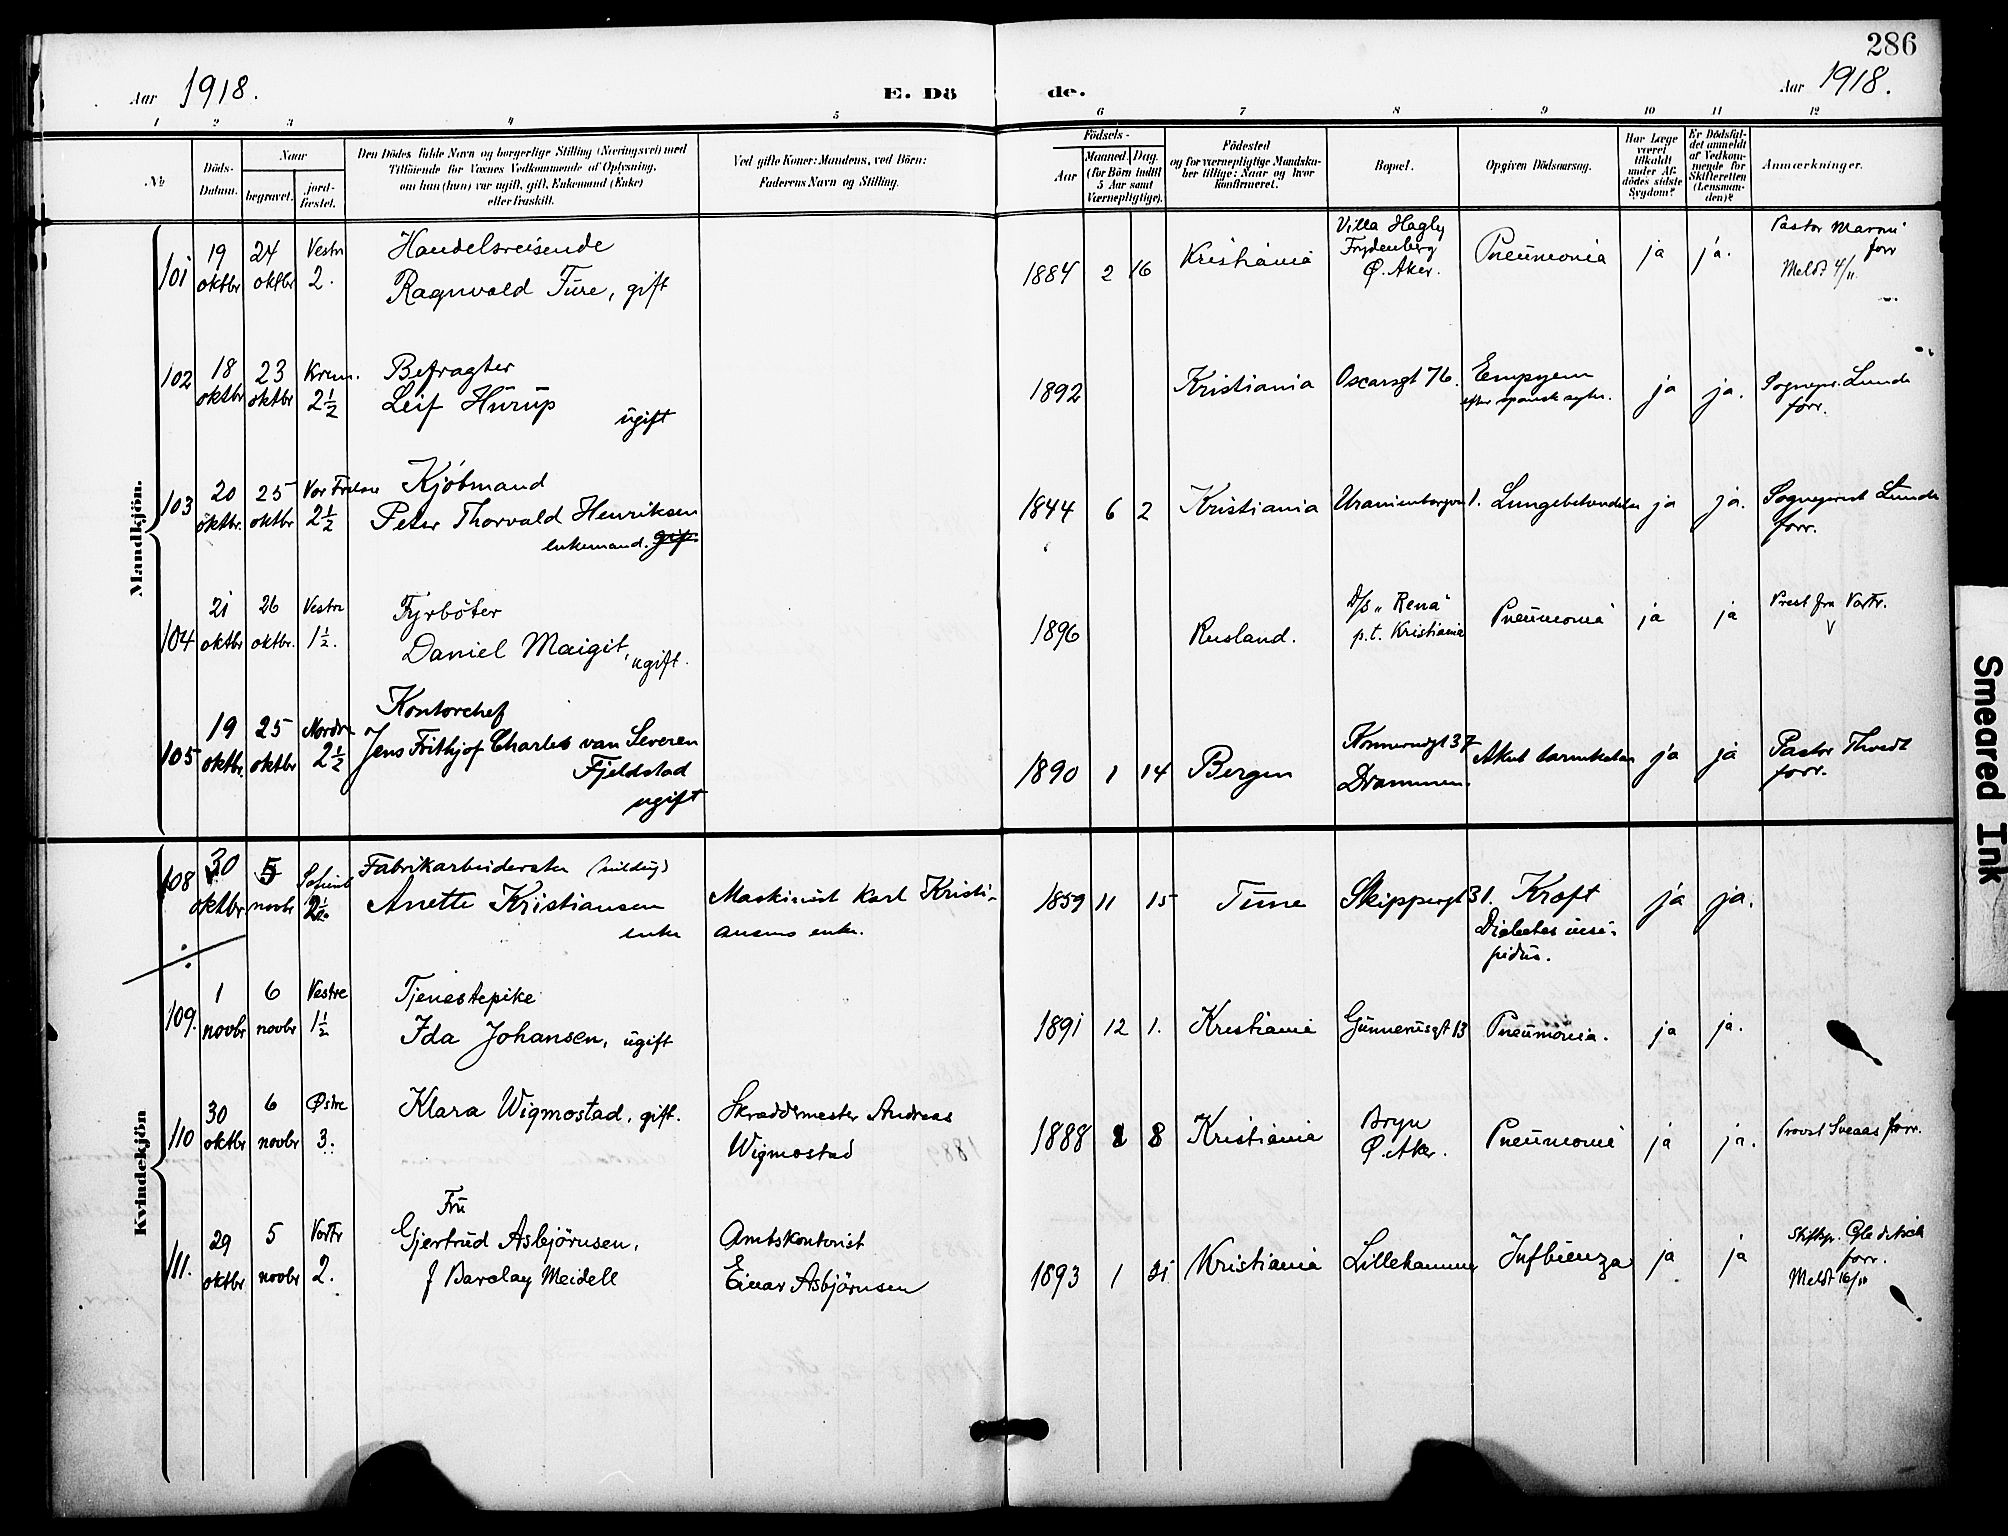 286
Aar 1918.
E. Döde.
Aar 1918.
1 2 3 4 5 6 7 8 9 10 11 12
№
Döds-
Datum.
Naar
begravet.
jord-
fæstet.
Den Dödes fulde Navn og borgerlige Stilling (Næringsvei) med
Tilföiende for Voxnes Vedkommende af Oplysning,
om han (hun) var ugift, gift, Enkemand (Enke)
eller fraskilt.
Ved gifte Koner: Mandens, ved Börn:
Faderens Navn og Stilling.
Födsels-
Aar
Maaned. Dag.
(for Börn indtil
5 Aar samt
Værnepligtige).
Födested
og for værnepligtige Mandska-
ber tillige: Naar og hvor
konfirmeret.
Bopæl.
Opgiven Dödsaarsag.
Har Læge
været
tilkaldt
under Af-
dödes sidste
Sygdom?
Er Dödsfal-
det anmeldt
af Vedkom-
mende for
Skifteretten
(Lensman-
den)?
Anmærkninger.
Mandkjön.
101 19 oktbr 24 oktbr Vestre 2.
Handelsreisende
Ragnvald Ture, gift
1884 2 16 Kristiania
Villa Hagly
Frydenberg
Ø. Aker.
Pneumonia ja ja.
Pastor
forr
Meldt 4/11.
102 18 oktbr 23 oktbr Krem. 2½
Befragter
Leif Hurup
ugift
1892 Kristiania Oscarsgt 76.
Empyem
efter spansk syke.
ja ja.
Sognepr. Lunde
forr.
103 20 oktbr. 25 oktbr Vor Frelsers 2½
Kjöbmand
Peter Thorvald Henriksen
enkemand. gift
1844 6 2 Kristiania Uranienborgvn 1. Lungebetændelse ja ja.
Sogneprest Lunde
forr.
104 21 oktbr 26 oktbr. Vestre 1½.
Fyrböter
Daniel Maigit, ugift.
1896 Rusland.
D/s „Rena"
p.t. Kristiania
Pneumonia ja ja
Prest fra Vortr.
105 19 oktbr. 25 oktbr Nordre 2½
Kontorchef
Jens Frithjof Charles van Severen
Fjeldstad
ugift
1890 1 14 Bergen
Konnerudgt 37
Drammen.
Akut tarmkatar ja ja
Pastor Thvedt
forr.
Kvindekjön
108 30 oktbr 5 novbr 2½
Fabrikarbeiderske
Anette Kristiansen
enke
Maskinist Karl Kristi-
ansens enke.
1859 11 15 Tune Skippergt 31.
Kræft
Diabetes insi-
pidus.
ja ja.
109. 1 novbr 6 novbr Vestre 1½
Tjenestepike
Ida Johansen, ugift
1891 12 1. Kristiania Gunnerusgt 13 Pneumonia. ja ja.
110 30 oktbr 6 novbr Østre 3.
Klara Wigmostad, gift.
Skræddermester Andreas
Wigmostad
1888 8 Kristiania
Bryn
Ø. Aker.
Pneumonia ja ja. Provst Sveaas forr.
111. 29 oktbr 5 novbr Vortr 2.
Fru
Gjertrud Asbjörnsen,
f Barclay Meidell
Amtskontorist
Einar Asbjörnsen
1893 1 31 Kristiania Lillehammer Influenza ja ja
Stiftspr. Gleditsch
forr.
Meldt 16/11
Smeared Ink